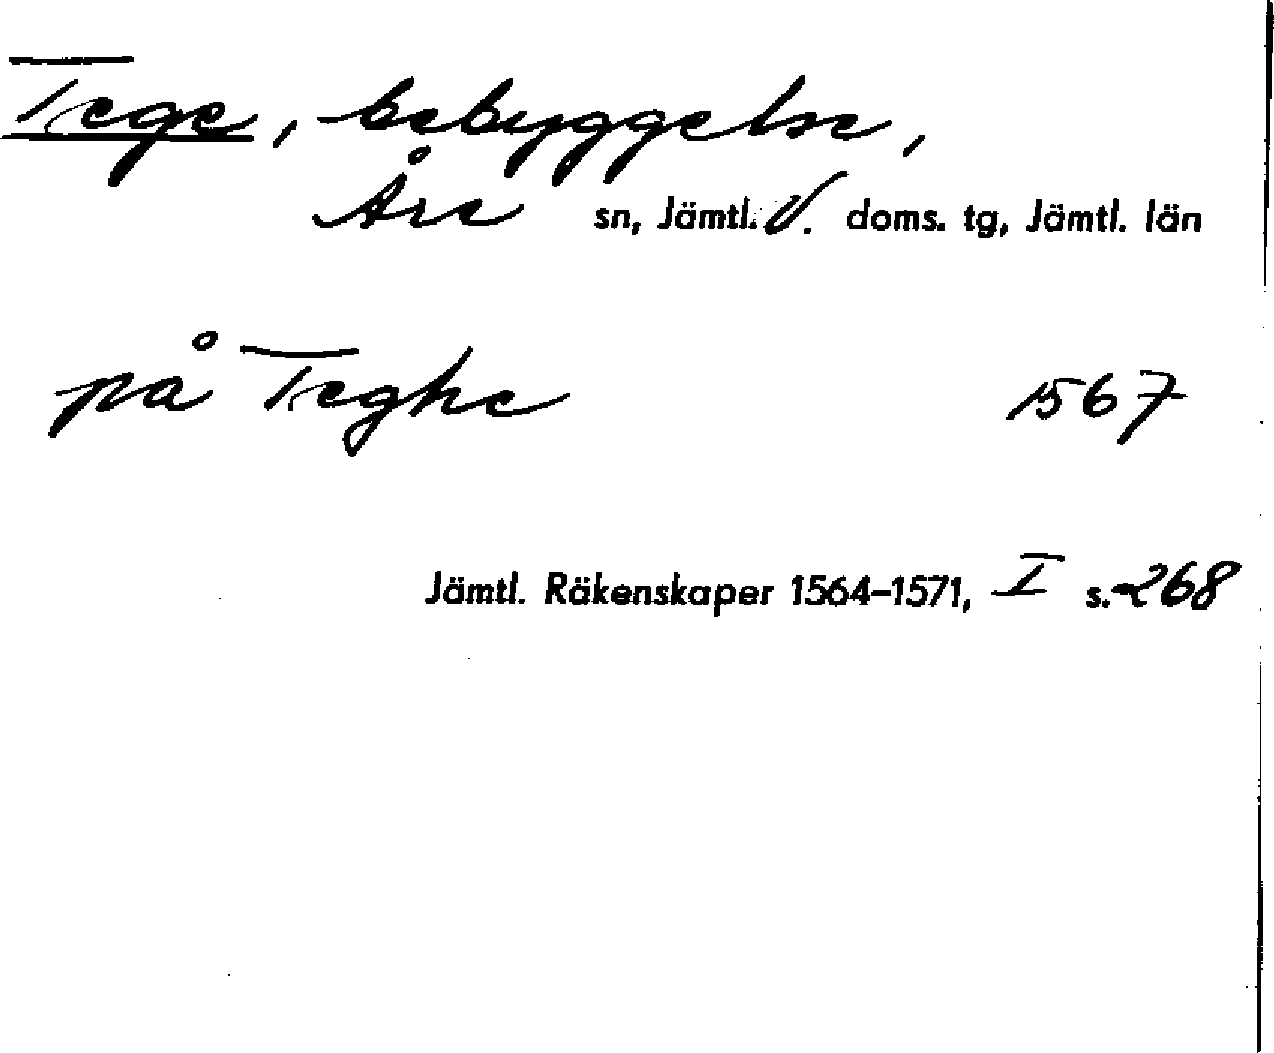 Tege, bebyggelse,
Åre sn, Jämtl. V. doms. tg, Jämtl. län
på Teghe 1567
Jämtl. Räkenskaper 1564–1571, I s. 268